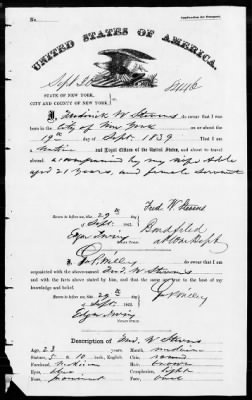 Application for Passport.
No.
UNITED STATES OF AMERICA.
Sept 30
STATE OF NEW YORK,
CITY AND COUNTY OF NEW YORK,
I, Frederick W Stevens do swear that I was
born in the City of New York on or about the
19th day of Sept. 1839 That I am a
Native and Loyal Citizen of the United States, and about to travel
abroad accompanied by my wife Adele
aged 21 years, and female servant
Fred W Stevens
Sworn to before me, this 29th day
of Sept 1862
Edgar Irving
Notary Public
Bond filed
at
I, do swear that I am
acquainted with the above-named Fred. W Stevens and
with the facts above stated by him, and that the same are true to the best of my
knowledge and belief.
Sworn to before me, this 29th day
of Sept. 1862
Edgar Irving
Notary Public
Description of Fred. W Stevens
Age, 23 years,
Mouth, medium
Stature, 5 10 inch, English.
Chin, round
Forehead, medium
Hair, brown
Eyes, blue
Complexion, light
Nose, prominent
Face, oval